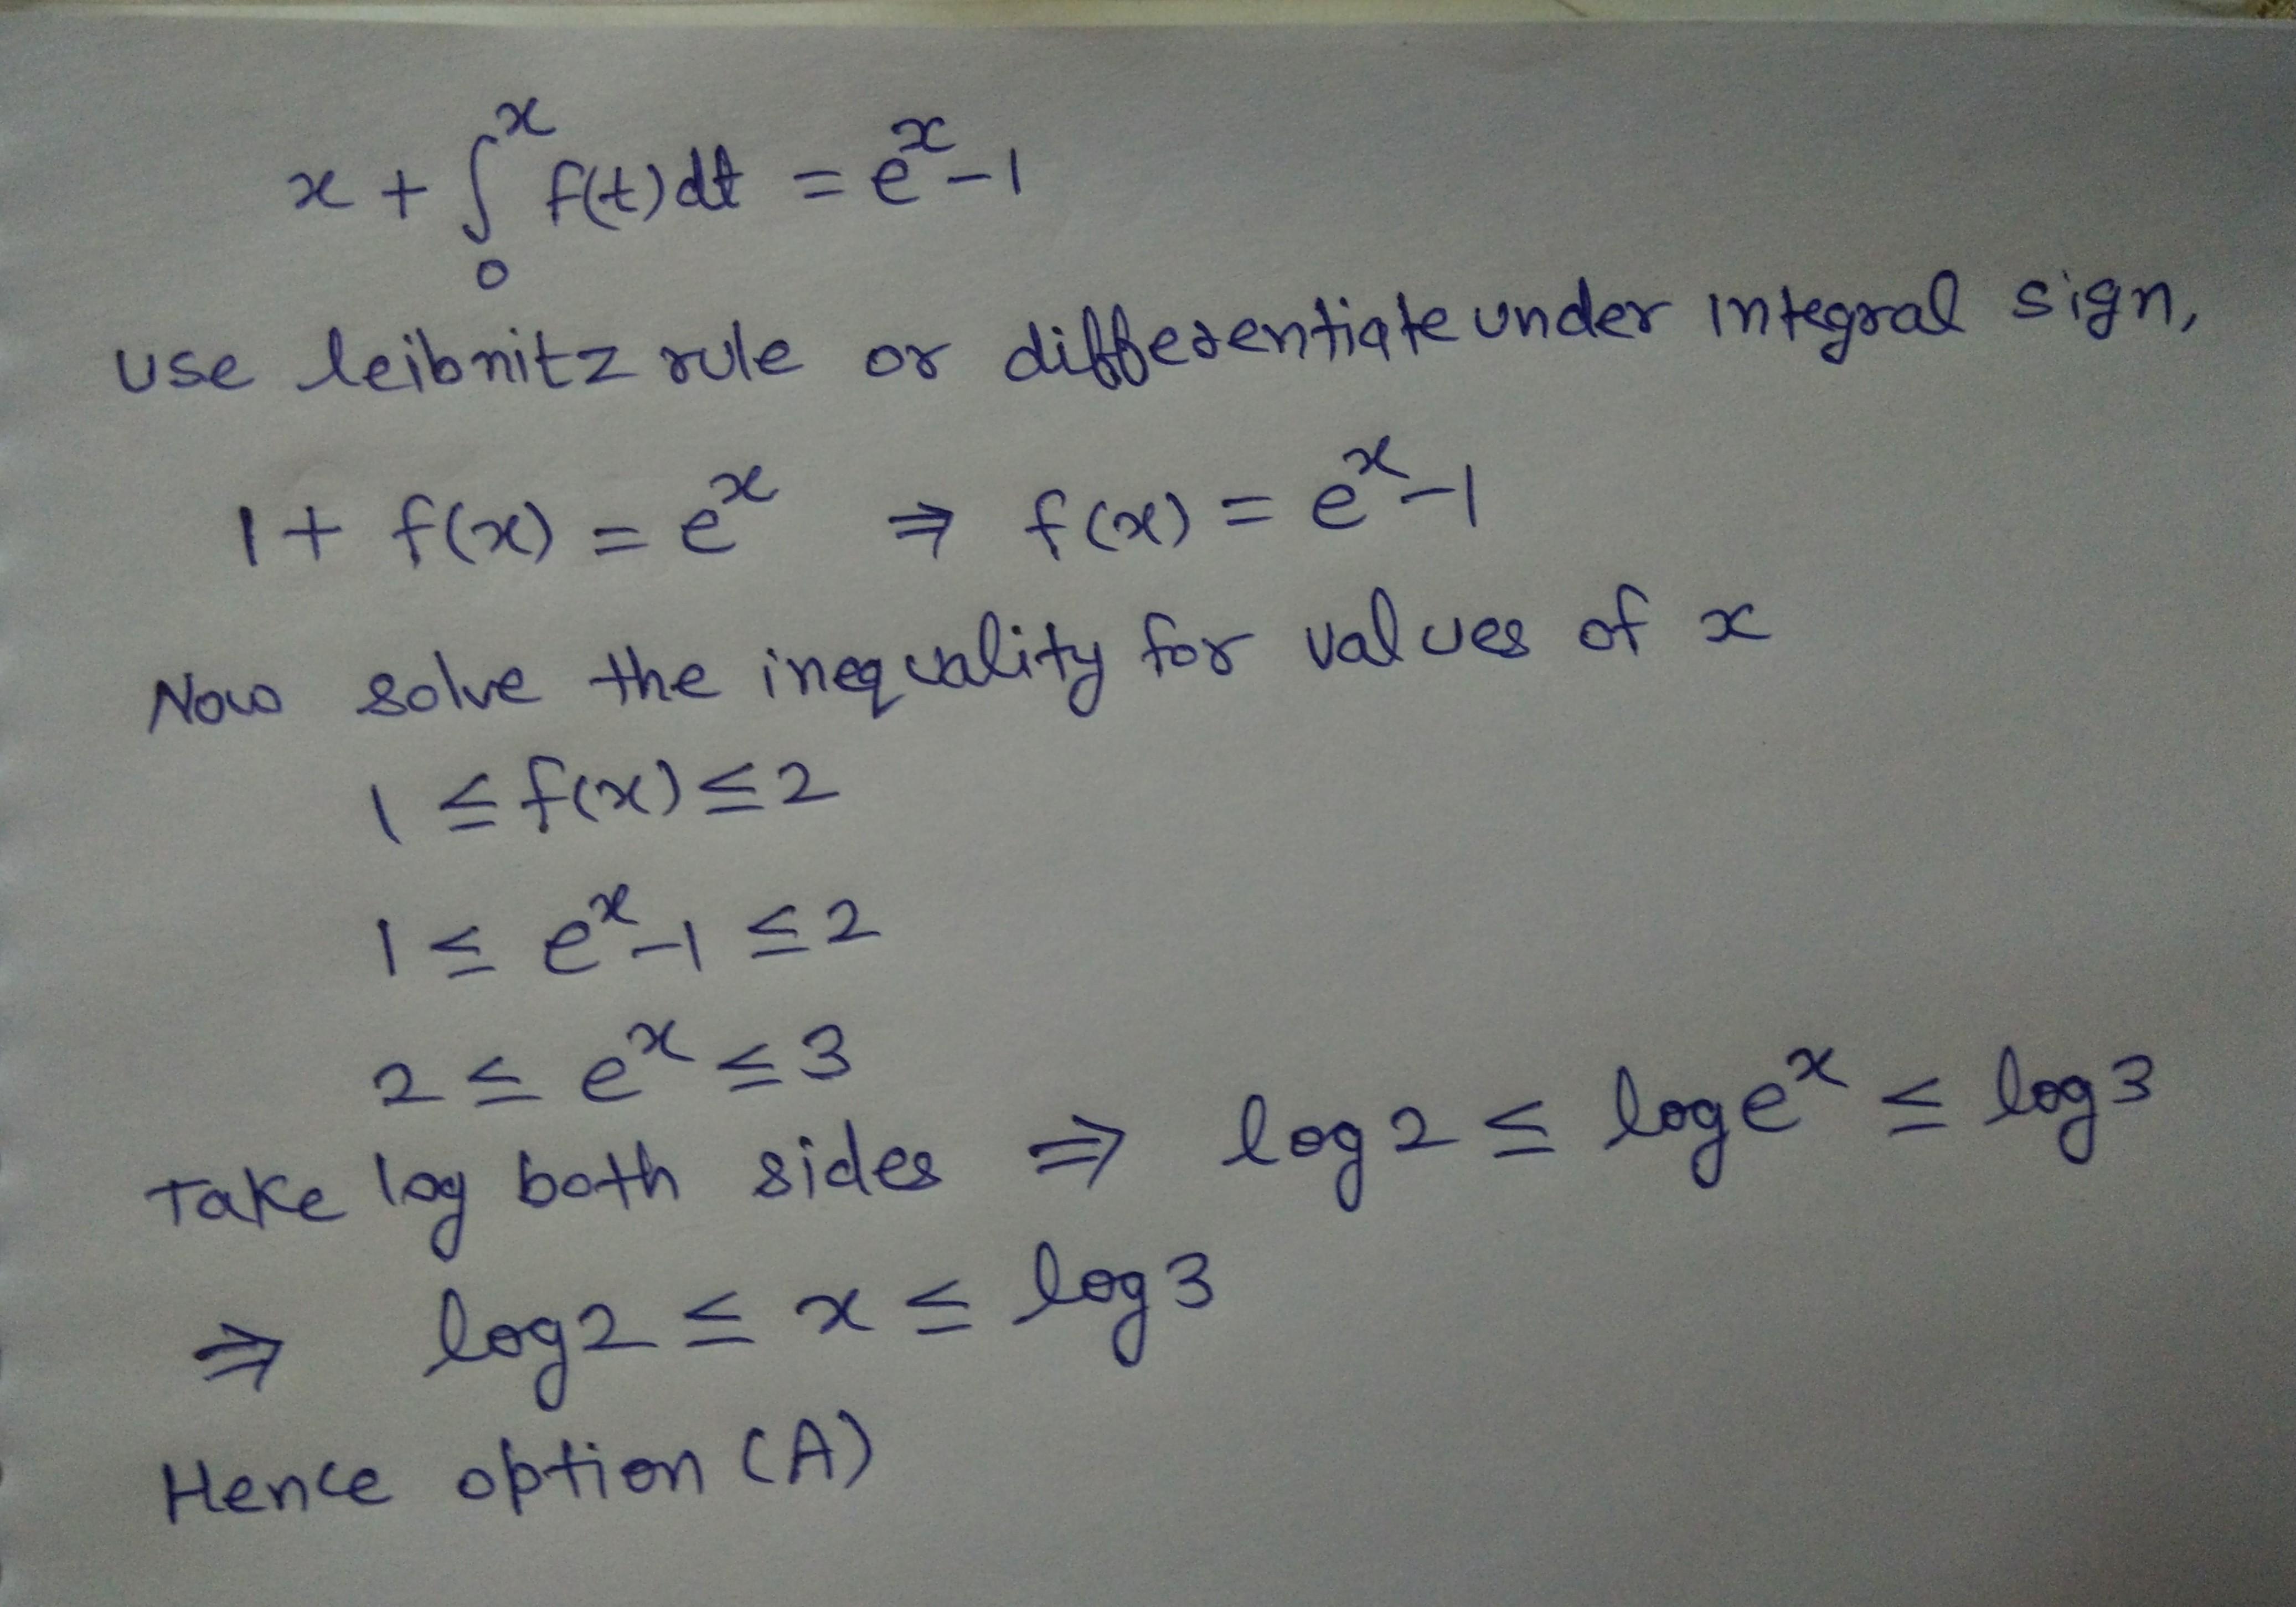 x + ∫₀ˣ f(t)dt = eˣ-1
use leibnitz rule or differentiate under integral sign,
1 + f(x) = eˣ ⇒ f(x) = eˣ-1
Now solve the inequality for values of x
1 ≤ f(x) ≤ 2
1 ≤ eˣ-1 ≤ 2
2 ≤ eˣ ≤ 3
Take log both sides ⇒ log2 ≤ logeˣ ≤ log3
⇒ log2 ≤ x ≤ log3
Hence option (A)